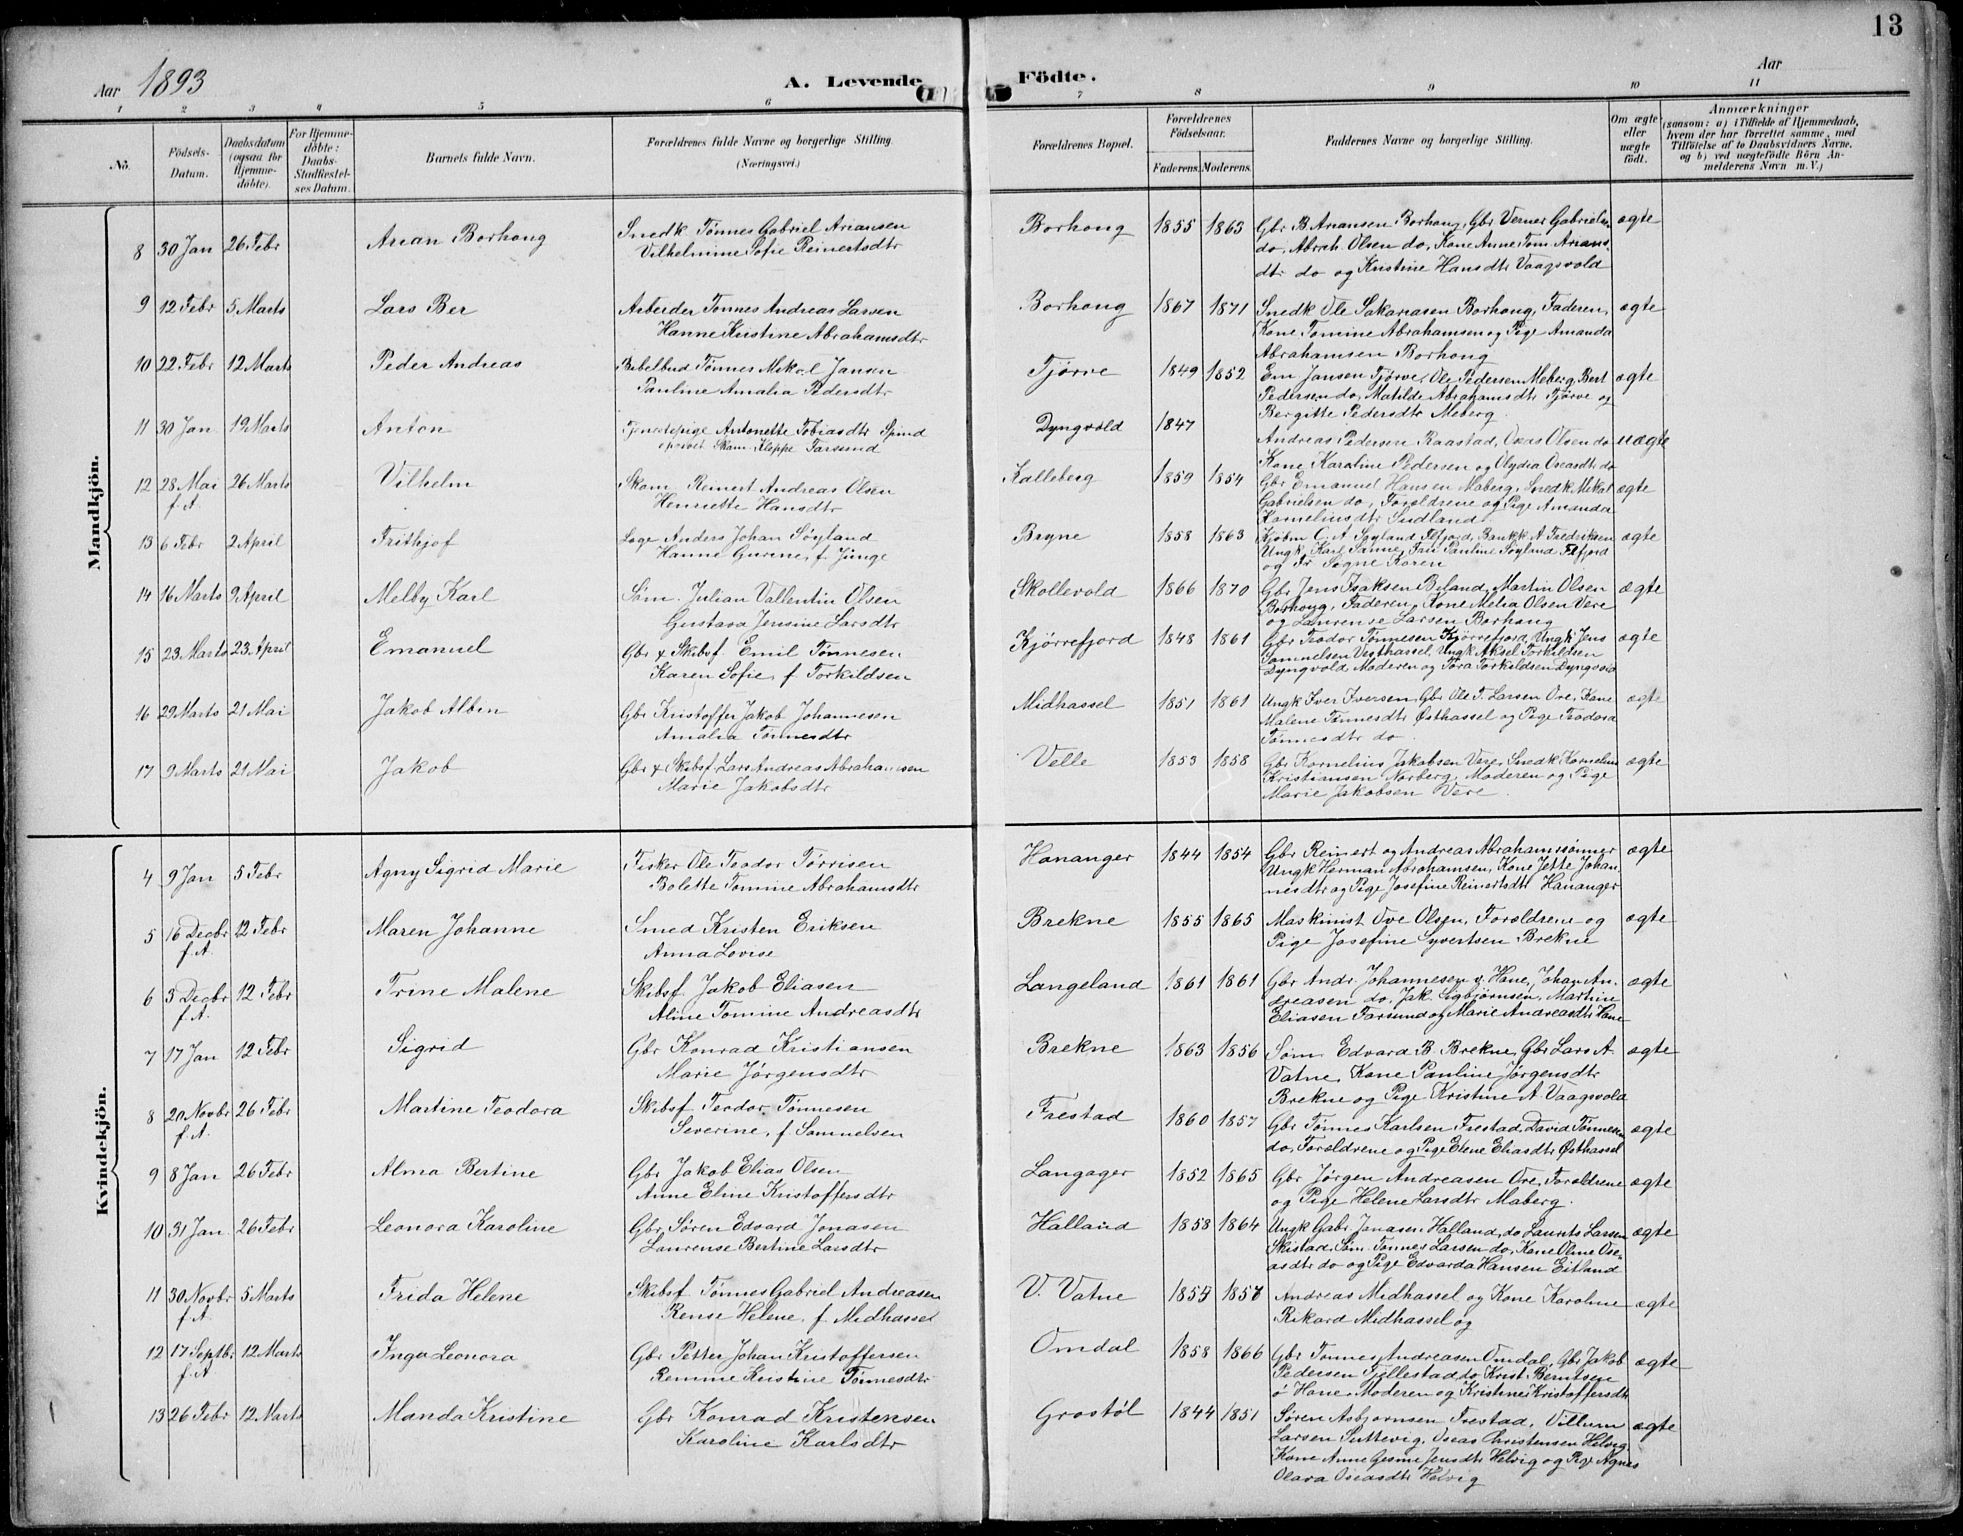 13
Aar 1893 A. Levende Födte. Aar
1 2 3 4 5 6 7 8 9 10 11
No.
Födsels-Datum.
Daabsdatum (ogsaa for Hjemme-döbte).
For Hjemme-döbte: Daabs-Stadfæstel-ses Datum.
Barnets fulde Navn.
Forældrenes fulde Navne og borgerlige Stilling (Næringsvei.)
Forældrenes Bopæl.
Forældrenes Födselsaar.
Faderens. Moderens.
Faddernes Navne og borgerlige Stilling.
Om ægte eller uægte født.
Anmærkninger
(saasom: a) i Tilfælde af Hjemmedaab, hvem der har forrettet samme, med Tilföielse af to Daabsvidners Navne. og b) ved uægtefödte Börn Anmelderens Navn m.V.)
Mandkjön.
8 30 Jan 26 Febr Arian Borhaug Snedk Tønnes Gabriel Ariansen Borhaug 1855 1863 Gbr B. Ariansen Borhaug, Gbr Verner Gabrielsen ægte
Vilhelmine Sofie Reinertsdtr do, Abrah. Olsen do, Kone Anne Tom. Arians-
dtr do og Kristine Hansdtr Vaagsvold
9 12 Febr 5 Marts Lars Ber Arbeider Tonnes Andreas Larsen Borhaug 1867 1871 Snedk Ole Sakariasen Borhaug, Faderen, ægte
Hanne Kristine Abrahamsdtr Kone Tomine Abrahamsen og Pige Amanda
Abrahamsen Borhaug
10 22 Febr 12 Marts Peder Andreas Bibelbud Tønnes Mikal Jansen Tjørve 1849 1852 Em Jansen Tjørve, Ole Pedersen Meberg, Bert ægte
Pauline Amalia Pedersdtr Pedersen do, Matilde Abrahamsdtr Tjørve og
Bergitte Pedersdtr Meberg
11 30 Jan 19 Marts Anton Tjenestepige Antonette Tobiasdtr Spind Dyngvold 1847 Andreas Pedersen Raastad, Oseas Olsen do uægte
Skom. Kleppe Farsund Kone Karoline Pedersen og Olydia Oseasdtr do
12 28 Mai f.A. 26 Marts Vilhelm Skom Reinert Andreas Olsen Kalleberg 1859 1854 Gbr Emanuel Hansen Maberg, Snedk Mikal ægte
Henriette Hansdtr Gabrielsen do, Forældrene og Pige Amanda
Korneliusdtr Sudland
13 6 Febr 2 April Frithjof Læge Anders Johan Søyland Bryne 1858 1863 Kjøbm C. A Søyland Flfjord, Bankk. A Fredriksen ægte
Hanne Gurine, f. Jinge Ungk Karl Sanne, Frü Pauline Søyland Flfjord
og Fr Signe Roren
14 16 Marts 9 April Melby Karl Søm. Julian Vallentin Olsen Skollevold 1866 1870 Gbr Jens Isaksen Byland, Martin Olsen ægte
Gustava Jensine Larsdtr Borhaug, Faderen, Kone Melia Olsen Vere
og Laurense Larsen Borhaug
15 23 Marts 23 April Emanuel Gbr & Skibsf Emil Tønnesen Kjørrefjord 1848 1861 Gbr Teodor Tønnesen Kjørrefjord, Ungk Jens ægte
Karen Sofie, f Torkildsen Samuelsen Vesthassel, Ungk Aksel Torkildsen
Dyngvold, Moderen og Tora Torkildsen Dyngvold
16 29 Marts 21 Mai Jakob Albin Gbr Kristoffer Jakob Johannesen Midhassel 1851 1861 Ungk Iver Iversen, Gbr Ole T. Larsen Ore, Kone ægte
Amalia Tønnesdtr Malene Tønnesdtr Østhassel og Pige Teodora
Tønnesdtr do
17 9 Marts 21 Mai Jakob Gbr & Skibsf Lars Andreas Abrahamsen Velle 1853 1858 Gbr Kornelius Jakobsen Vere, Snedk Kornelius ægte
Marie Jakobsdtr Kristiansen Norberg, Moderen og Pige
Marie Jakobsen Vere
Kvindekjön.
4 9 Jan 5 Febr Agny Sigrid Marie Fisker Ole Teodor Tørrisen Hananger 1844 1854 Gbr Reinert og Andreas Abrahamssønner ægte
Bolette Tomine Abrahamsdtr Ungk Herman Abrahamsen, Kone Jette Johan-
nesdtr og Pige Josefine Reinertsdtr Hananger
5 16 Decbr f.A. 12 Febr Maren Johanne Smed Kristen Eriksen Brekne 1855 1865 Maskinist Ove Olsen, Forældrene og ægte
Anna Lovise Pige Josefine Syvertsen Brekne
6 5 Decbr f.A. 12 Febr Trine Malene Skibsf Jakob Eliasen Langeland 1861 1861 Gbr Andr Johannesen y. Hane, Johan An- ægte
Aline Tomine Andreasdtr dreasen do, Jak. Sigbjørnsen, Martine
Eliasen Farsund og Marie Andreasdtr Hane
7 17 Jan 12 Febr Sigrid Gbr Konrad Kristiansen Brekne 1863 1856 Søm. Edvard B. Brekne, Gbr Lars A. ægte
Marie Jørgensdtr Vatne, Kone Pauline Jørgensdtr
Brekne og Pige Kristine A Vaagsvold
8 20 Novbr f.A. 26 Febr Martine Teodora Skibsf Teodor Tønnesen Frestad 1860 1857 Gbr Tønnes Karlsen Frestad, David Tønnesen ægte
Severine, f Samuelsen do, Forældrene og Pige Elene Eliasdtr Østhassel
9 8 Jan 26 Febr Alma Bertine Gbr Jakob Elias Olsen Langager 1852 1865 Gbr Jørgen Andreasen Ore, Forældrene ægte
Anne Eline Kristoffersdtr og Pige Helene Larsdtr Maberg.
10 31 Jan. 26 Febr Leonora Karoline Gbr Søren Edvard Jonasen Halland 1858 1864 Ungk Gabr. Jonasen Halland, do Laurits Larsen ægte
Laurense Bertine Larsdtr Skistad, Søm. Tonnes Larsen do, Kone Oline Ose-
asdtr do og Pige Edvarda Hansen Eitland
11 30 Novbr f.A 5 Marts Frida Helene Skibsf Tønnes Gabriel Andreasen V. Vatne 1855 1857 Andreas Midhassel og Kone Karoline ægte
Rense Helene, f Midhassel Rikard Midhassel og
12 17 Septbr f.A 12 Marts Inga Leonora Gbr Petter Johan Kristoffersen Omdal 1858 1866 Gbr Tonnes Andreasen Omdal, Gbr Jakob ægte
Remine Kristine Tønnesdtr Pedersen Fjellestad do Krist. Berntsen
ø Hane Moderen og Kristine Kristoffersdtr
13 26 Febr 12 Marts Manda Kristine Gbr Konrad Kristensen Grostøl 1844 1851 Søren Asbjørnsen Frestad, Villum ægte
Karoline Karlsdtr Larsen Suttevig, Oseas Christensen Helvig,
Kone Anne Gesine Jensdtr Helvig og Pige Agnes
Olava Oseasdtr Helvig